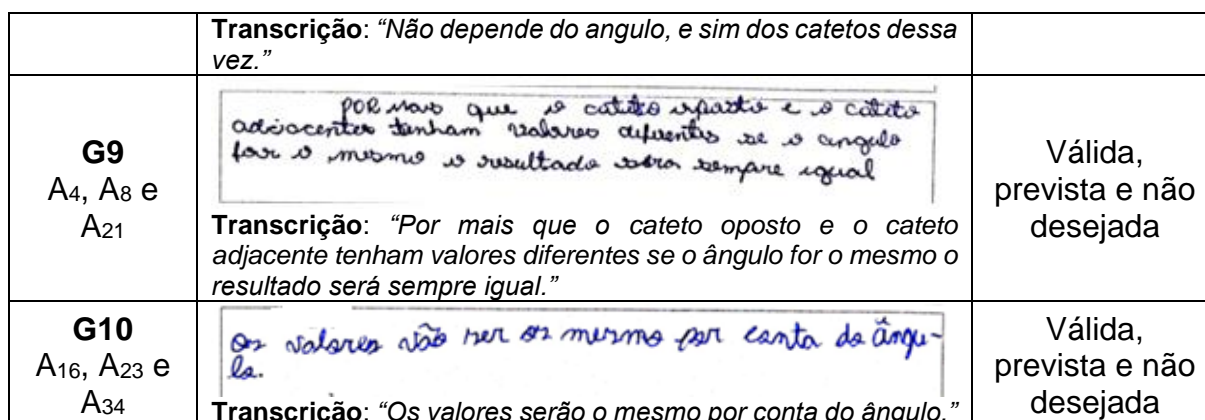 Transcrição: “Não depende do angulo, e sim dos catetos dessa
vez.”
G9
A4, A8 e
A21
POR mais que o cateto oposto e o cateto
adjacentes tenham valores diferentes se o angulo
for o mesmo o resultado sera sempre igual
Transcrição: “Por mais que o cateto oposto e o cateto
adjacente tenham valores diferentes se o ângulo for o mesmo o
resultado será sempre igual.”
Válida,
prevista e não
desejada
G10
A16, A23 e
A34
Os valores vão ser os mesmo por conta do ângu-
lo.
Transcrição: “Os valores serão o mesmo por conta do ângulo.”
Válida,
prevista e não
desejada